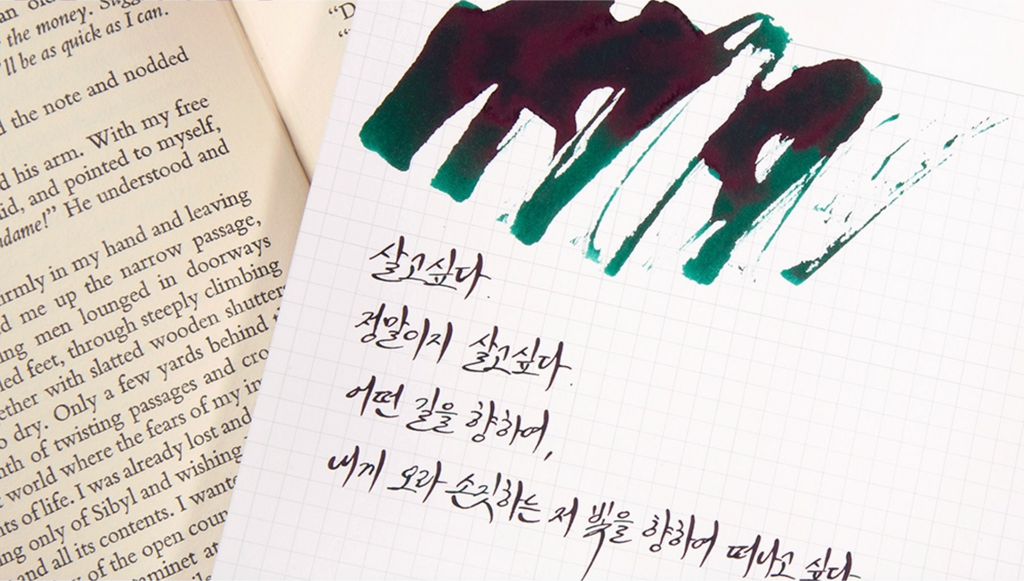 an old
the money. Sugg
'll be as quick as I can.
d the note and nodded
d his arm. With my free
id, and pointed to myself,
adame!” He understood and
irmly in my hand and leaving
d me up the narrow passage,
ing men lounged in doorways
led feet, through steeply climbing
ether with slatted wooden shutter
o dry. Only a few yards behind t
nth of twisting passages and cro
world where the fears of my in
nts of life. I was already lost and
ng only of Sibyl and wishing
and all its contents. I wante
y of the open coun
taminet an
“D
“
살고싶다.
정말이지 살고싶다.
어떤 길을 향하여,
내게 오라 손짓하는 저 빛을 향하여 떠나고 싶다